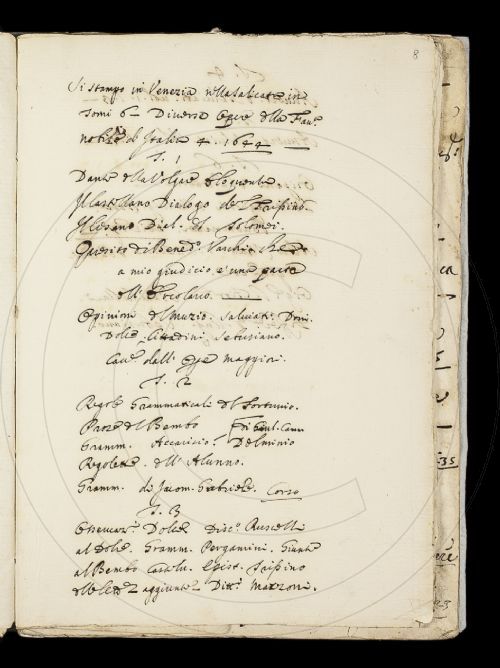 8
Si stampò in Venezia nella Salicata in
Tomi 6 Diverse opere della Fave.
nobile di Italia 4. 1644
T. 1
Dante della Volgare Eloquenza
Il Castellano Dialogo del Trissino
Il Cesano Dial. del Tolomei.
Quesito di Bened.º Varchi che
a mio giudicio è una parte
dell'Ercolano.
Opinioni del Muzio. Salviati. Doni.
Dolce. Cittadini
Cav.e dall' opere maggiori.
T. 2
Regole Grammaticali del Fortunio.
Prose del Bembo
Gramm. Accarisio. Delminio
Regolette dell'Alunno.
Gramm. di Jacom. Gabriele. Corso
T. 3
Osservaz.i Dolce Disc.º Ruscelli
al Dolce. Gramm. Pergamini. Giunte
al Bembo Castelv. Epist. Trissino
delle lettere aggiunte Ditt.i Mazzoni.